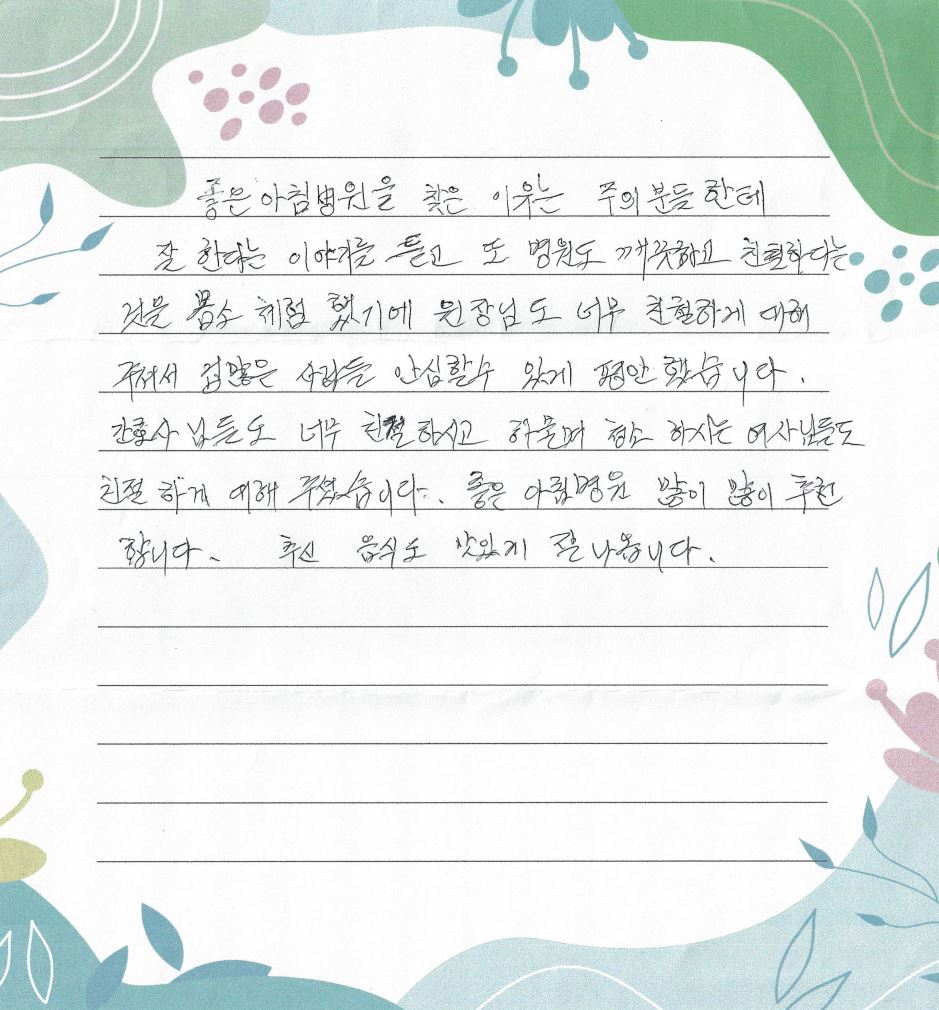 좋은아침병원을 찾은 이유는 주의 분들 한테
잘 한다는 이야기를 듣고 또 병원도 깨끗하고 친절하다는
것을 몸소 체험 했기에 원장님도 너무 친절하게 대해
주셔서 겁많은 사람들 안심할수 있게 평안했습니다.
간호사님들도 너무 친절하시고 하물며 청소 하시는 여사님들도
친절 하게 대해 주셨습니다. 좋은 아침병원 많이 많이 추천
합니다. 추신 음식도 맛있게 잘 나옵니다.